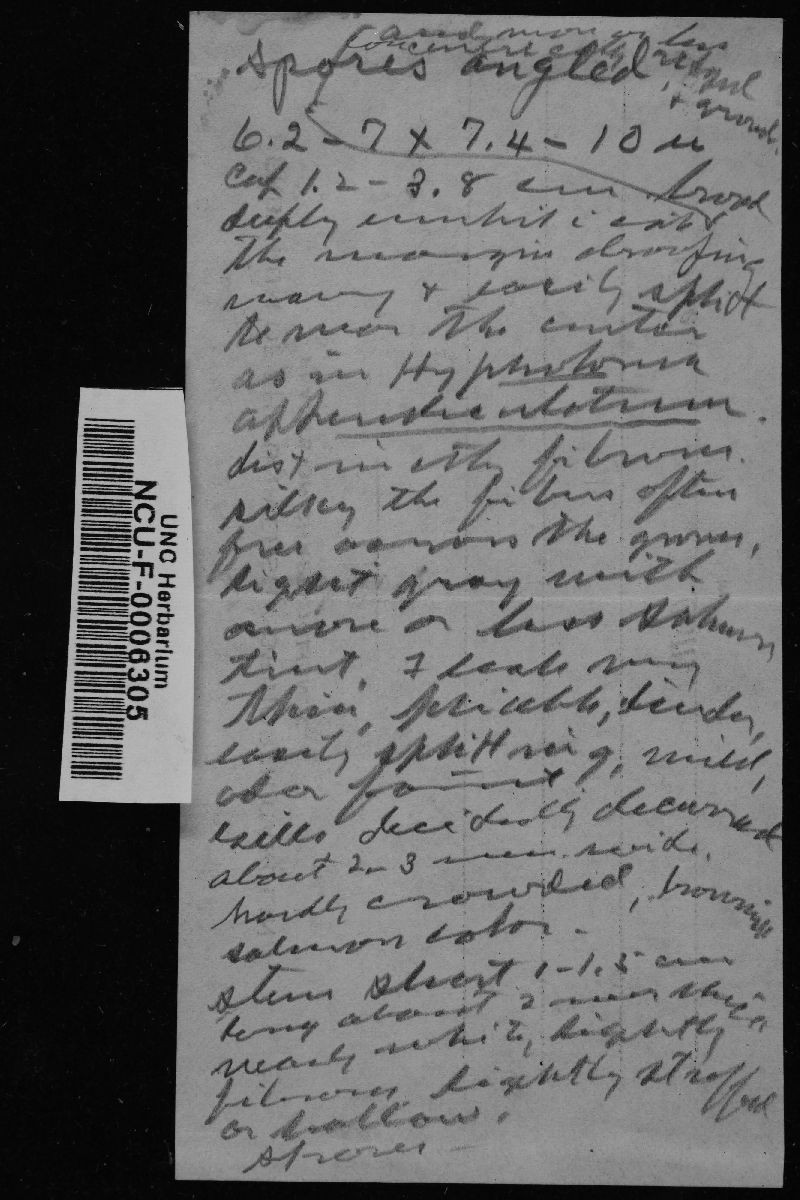 and more or less
concentrically
& grooved.
spores angled,
6.2 – 7 x 7.4 – 10 u
Cap 1.2 – 3.8 cm broad
deeply umbilicate
the margin drooping
wavy & easily split
to near the center
as in Hypholoma
appendiculatum.
distinctly fibrous
silky the fibers often
free across the grooves,
light gray with
more or less salmon
tint, flesh very
thin, pliable, tender,
easily splitting, mild,
odor faint
gills decidedly decurrent
about 2–3 mm wide,
hardly crowded, brownish
salmon color –
stem short 1–1.5 cm
long about 2 mm thick
nearly white, lightly
fibrous, lightly stuffed
or hollow.
spores –
UNC Herbarium
NCU-F-0006305